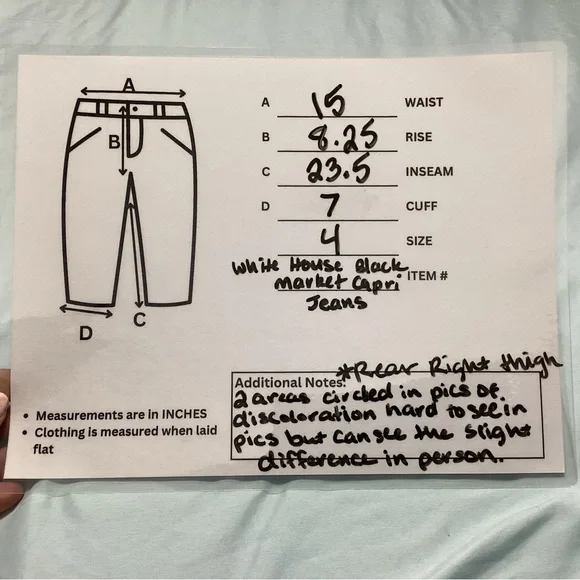 A
B
C
D
A 15 WAIST
B 8.25 RISE
C 23.5 INSEAM
D 7 CUFF
4 SIZE
White House Black
Market Capri ITEM #
Jeans
*Rear Right thigh
Additional Notes:
2 areas circled in pics of
discoloration hard to see in
pics but can see the slight
difference in person.
• Measurements are in INCHES
• Clothing is measured when laid
flat